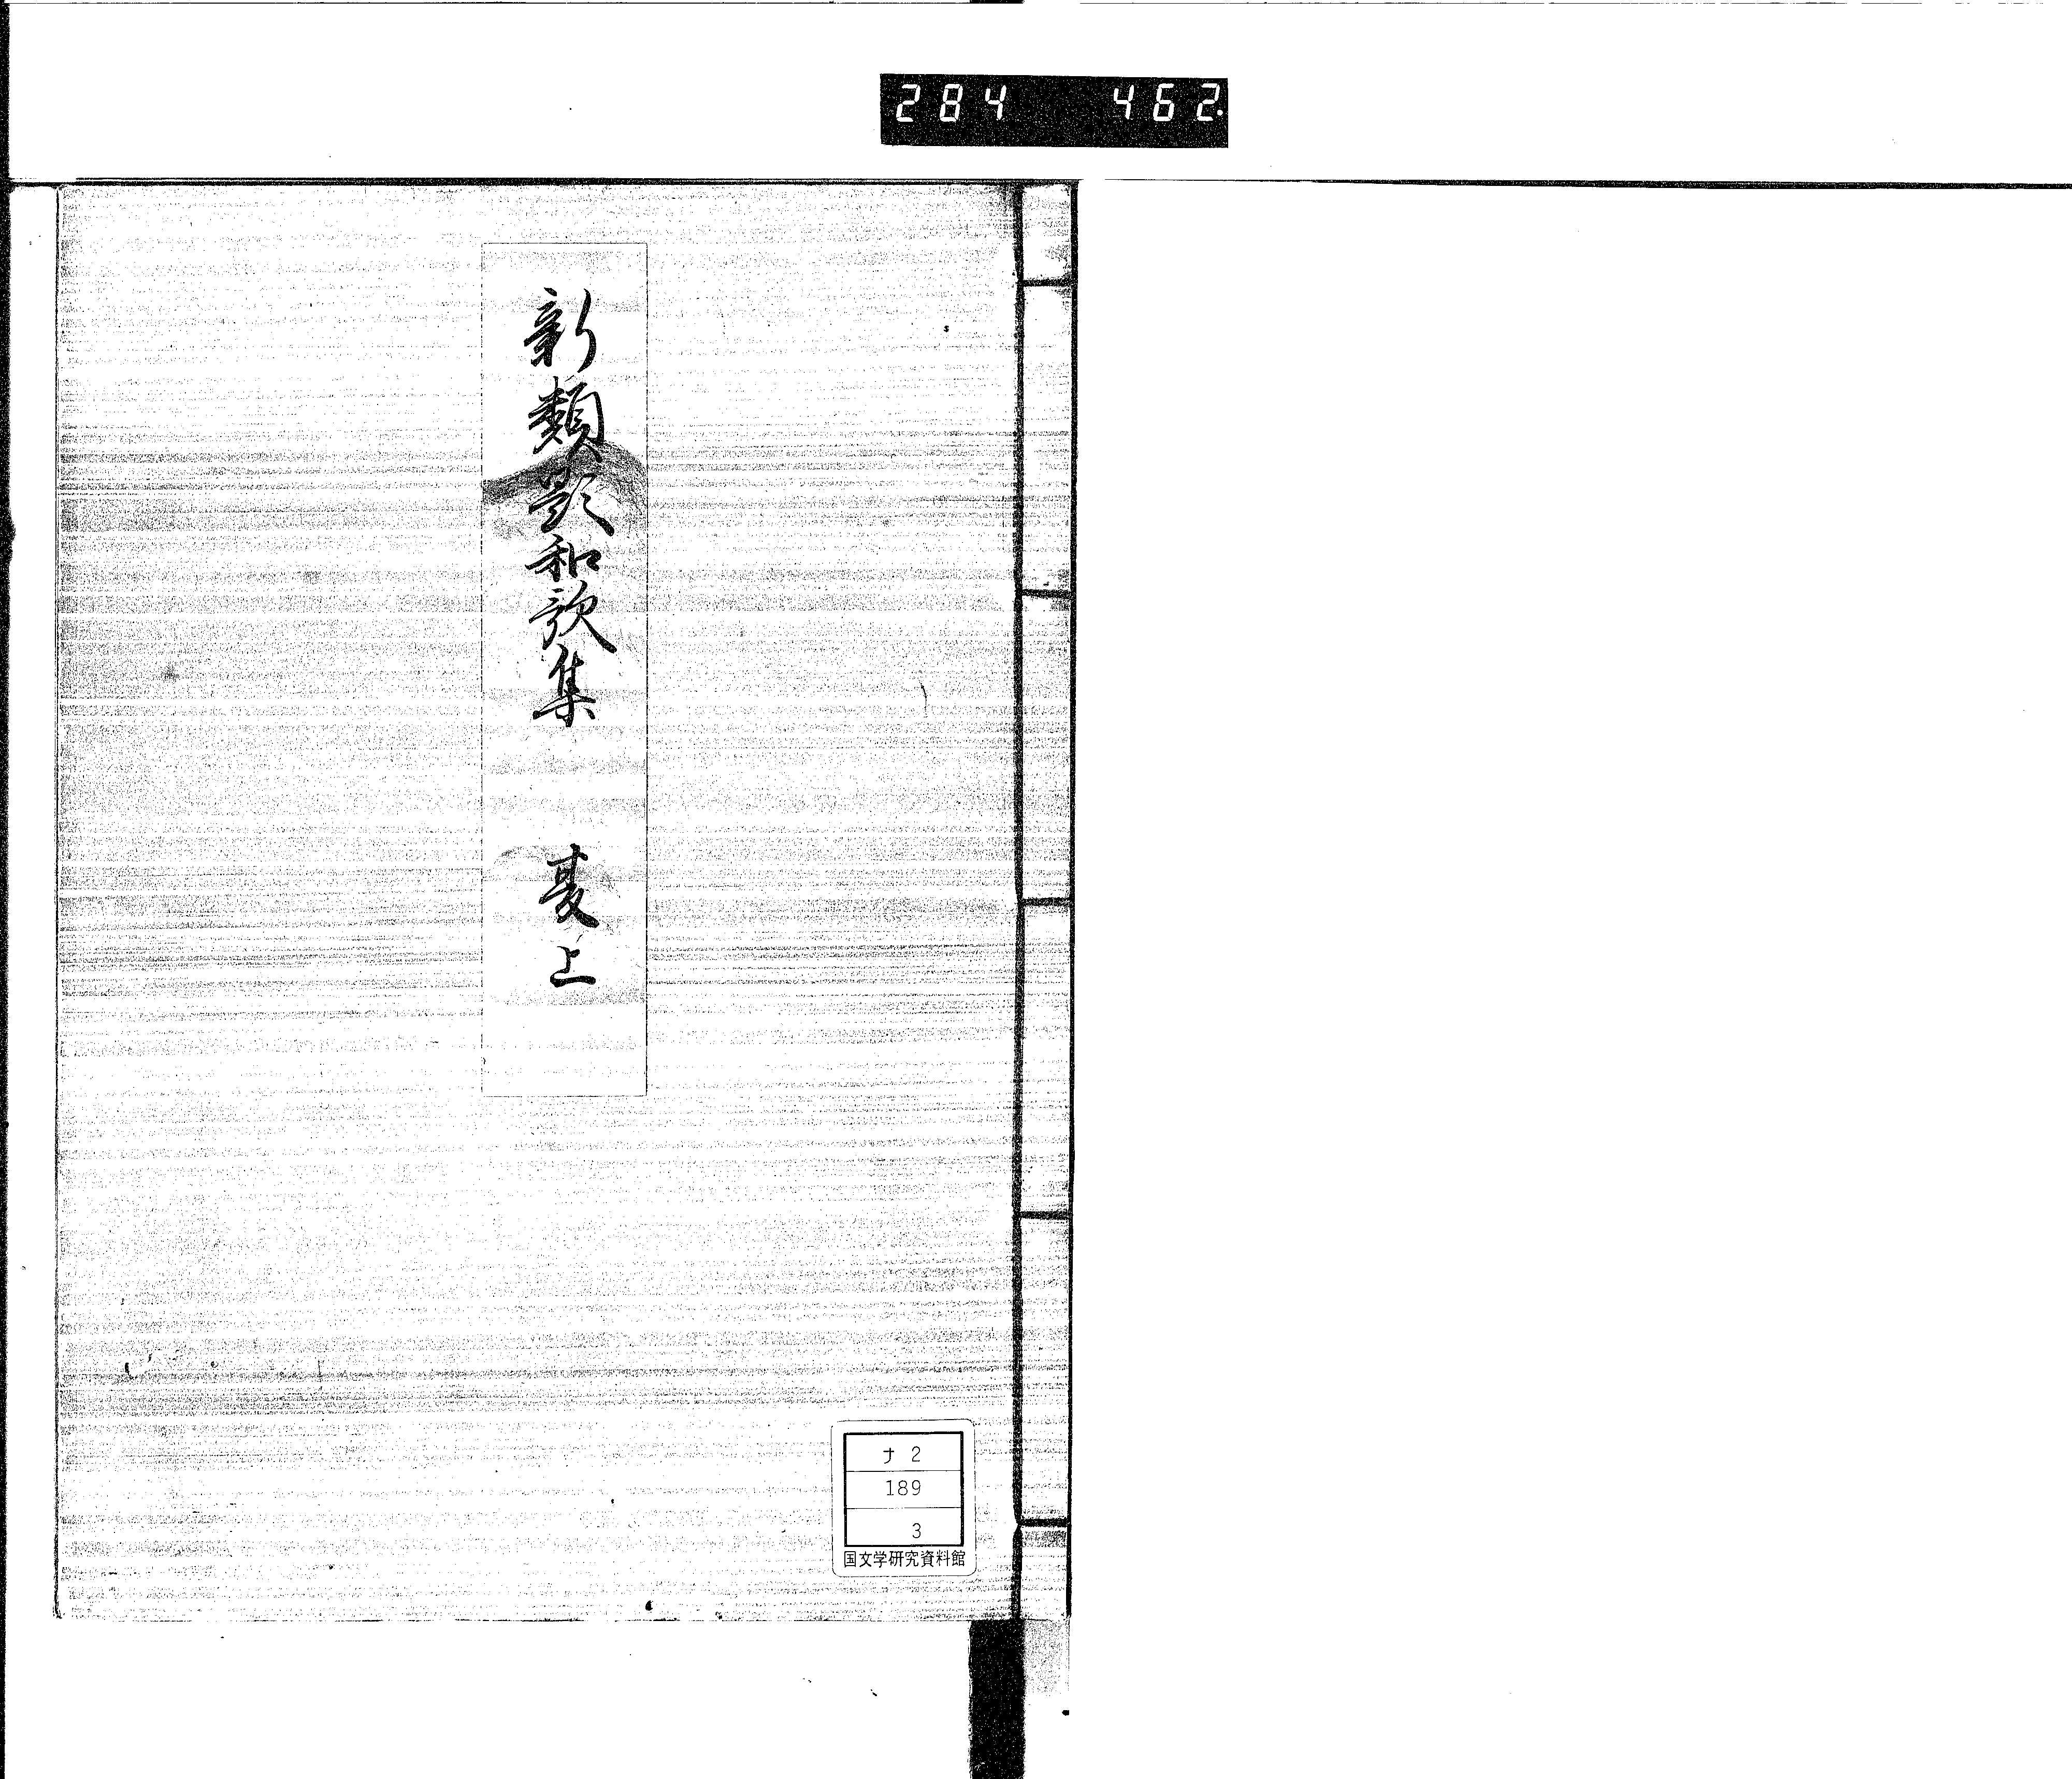 284 462.
新類題和歌集 夏上
ナ 2
189
3
国文学研究資料館